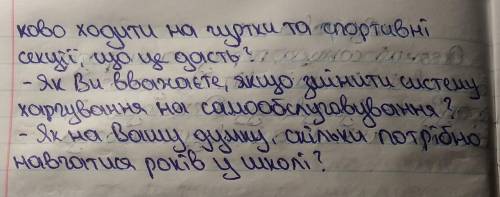 ково ходити на гуртки та спортивні
секції, що це дасть?
- Як Ви вважаєте, якщо змінити систему
харчування на самообслуговування?
- Як на Вашу думку, скільки потрібно
навчатися років у школі?